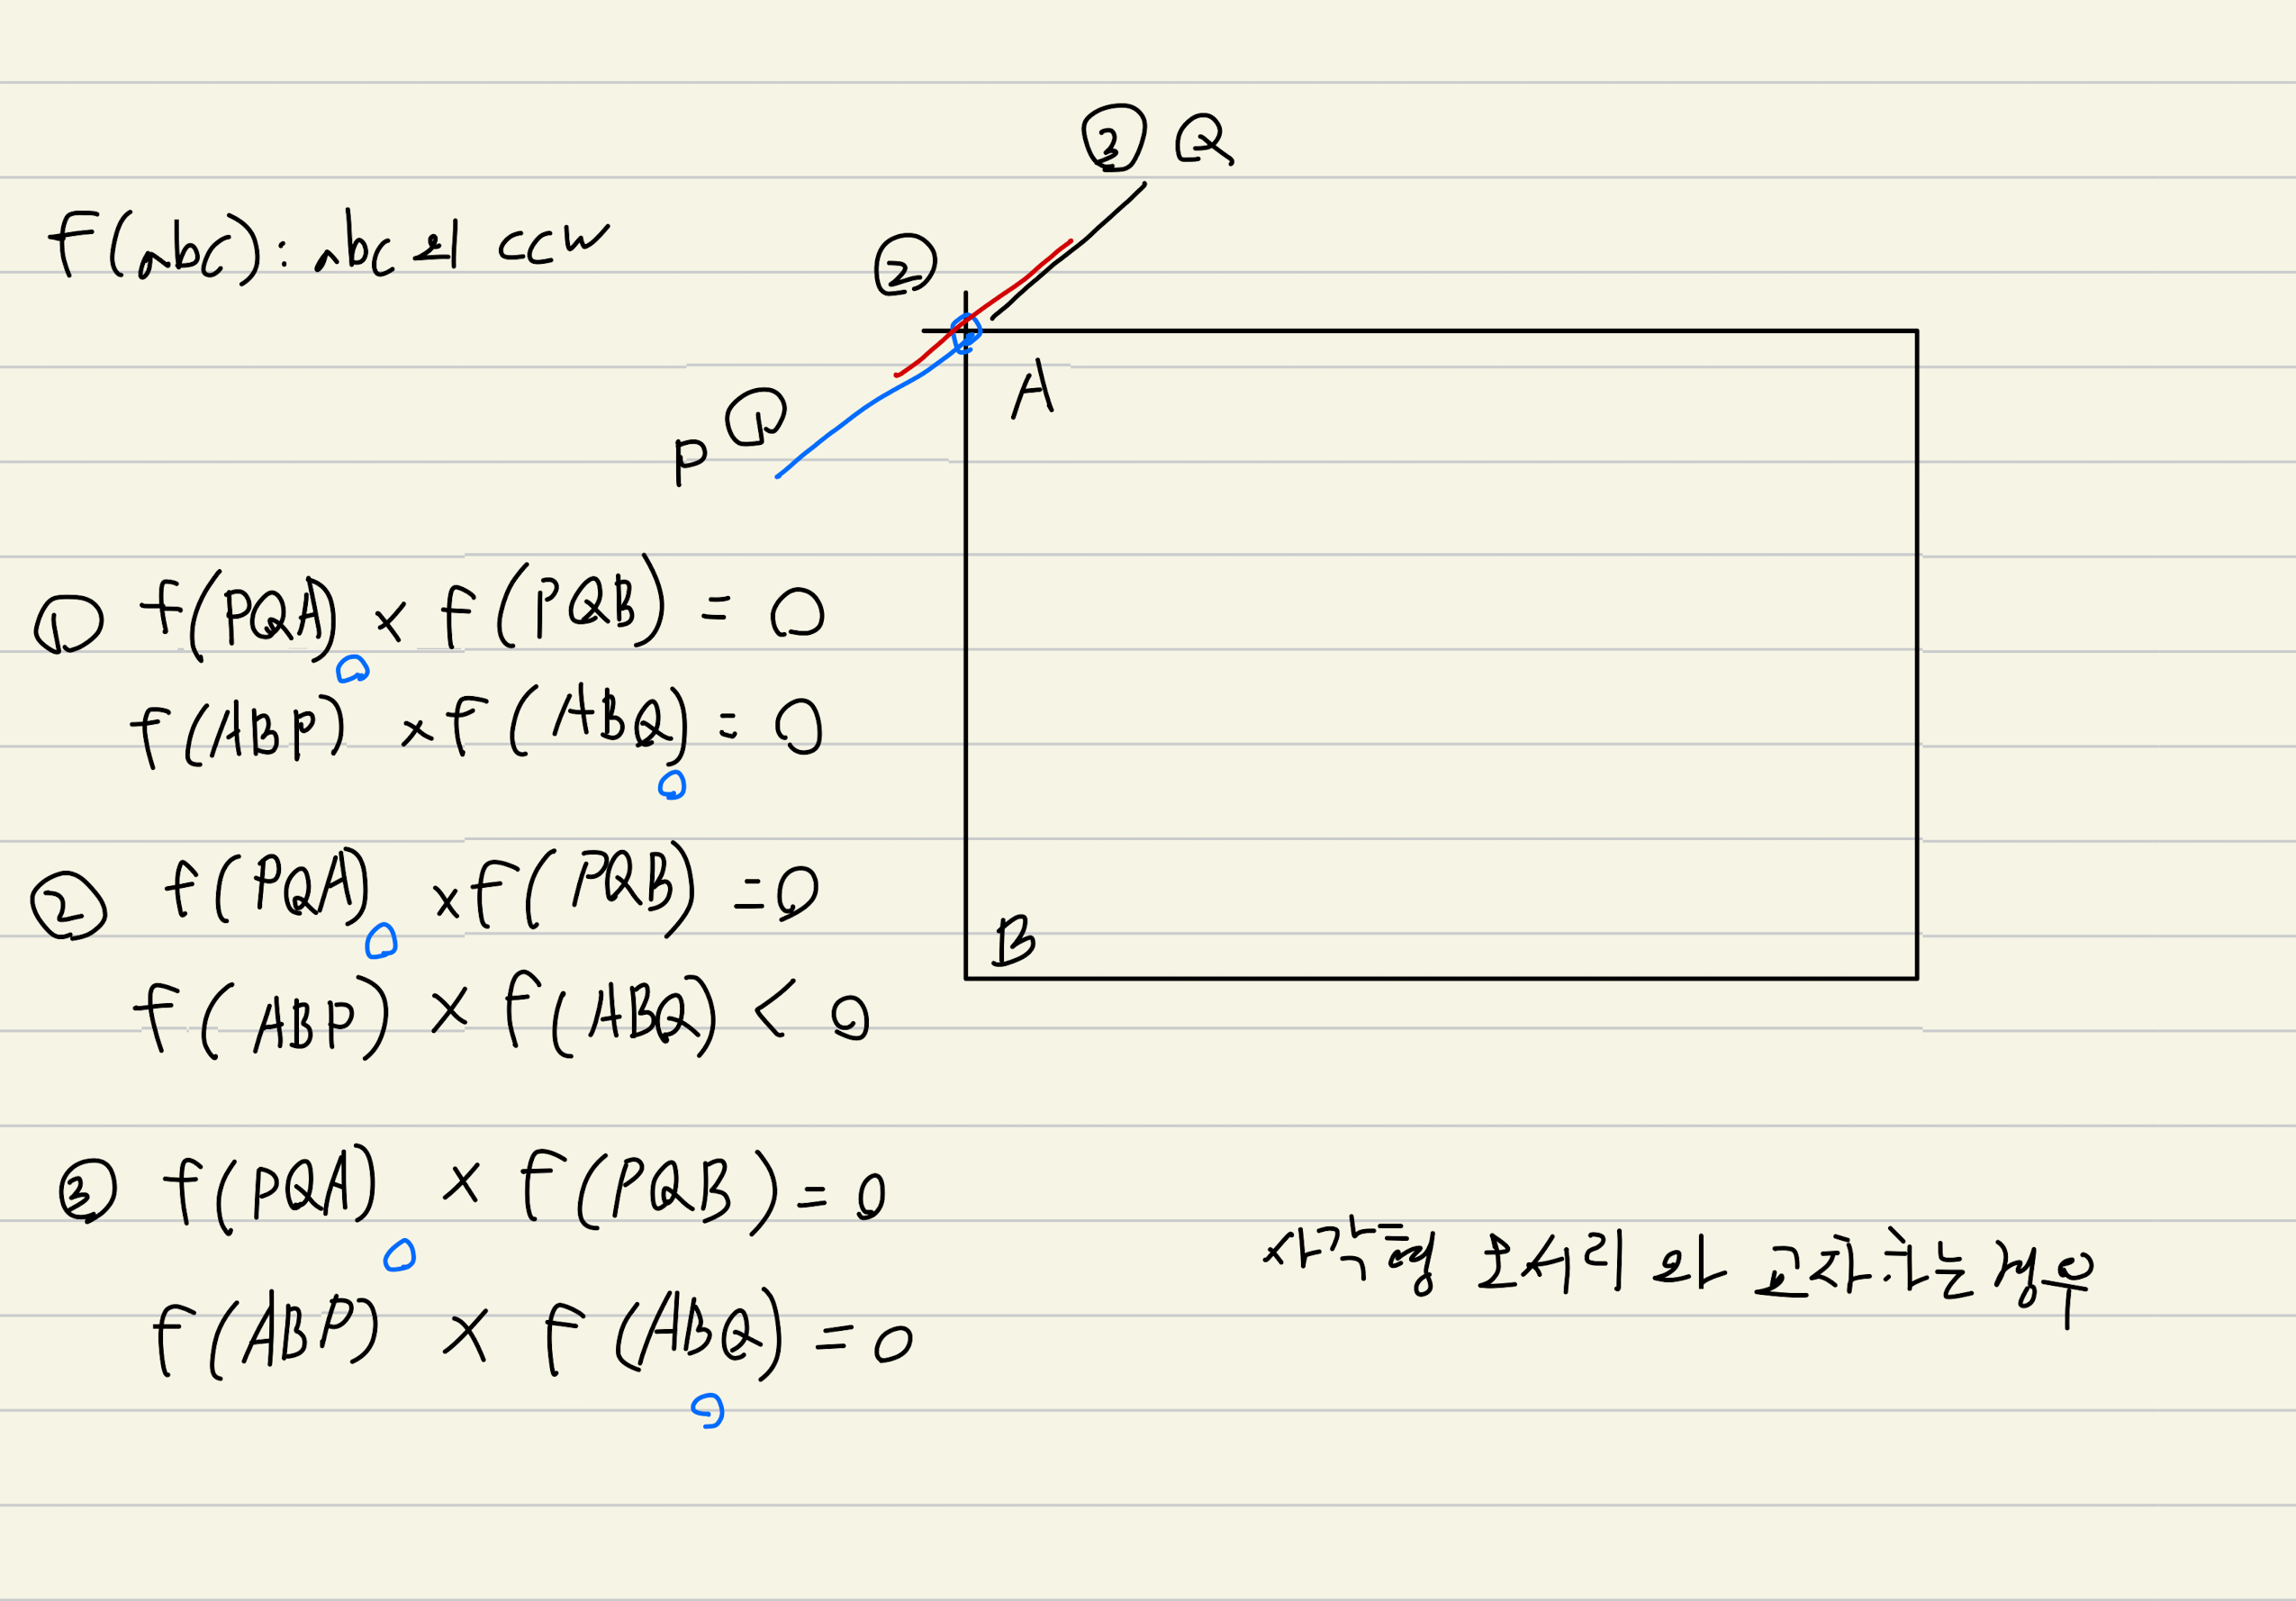 f(abc) : abc의 ccw
③ Q
②
P ①
A
B
① f(PQA) × f(PQB) = 0
0
f(ABP) × f(ABQ) = 0
0
② f(PQA) × f(PQB) = 0
0
f(ABP) × f(ABQ) < 0
③ f(PQA) × f(PQB) = 0
0
f(ABP) × f(ABQ) = 0
0
사각형 꼭지점에 교차하는 경우